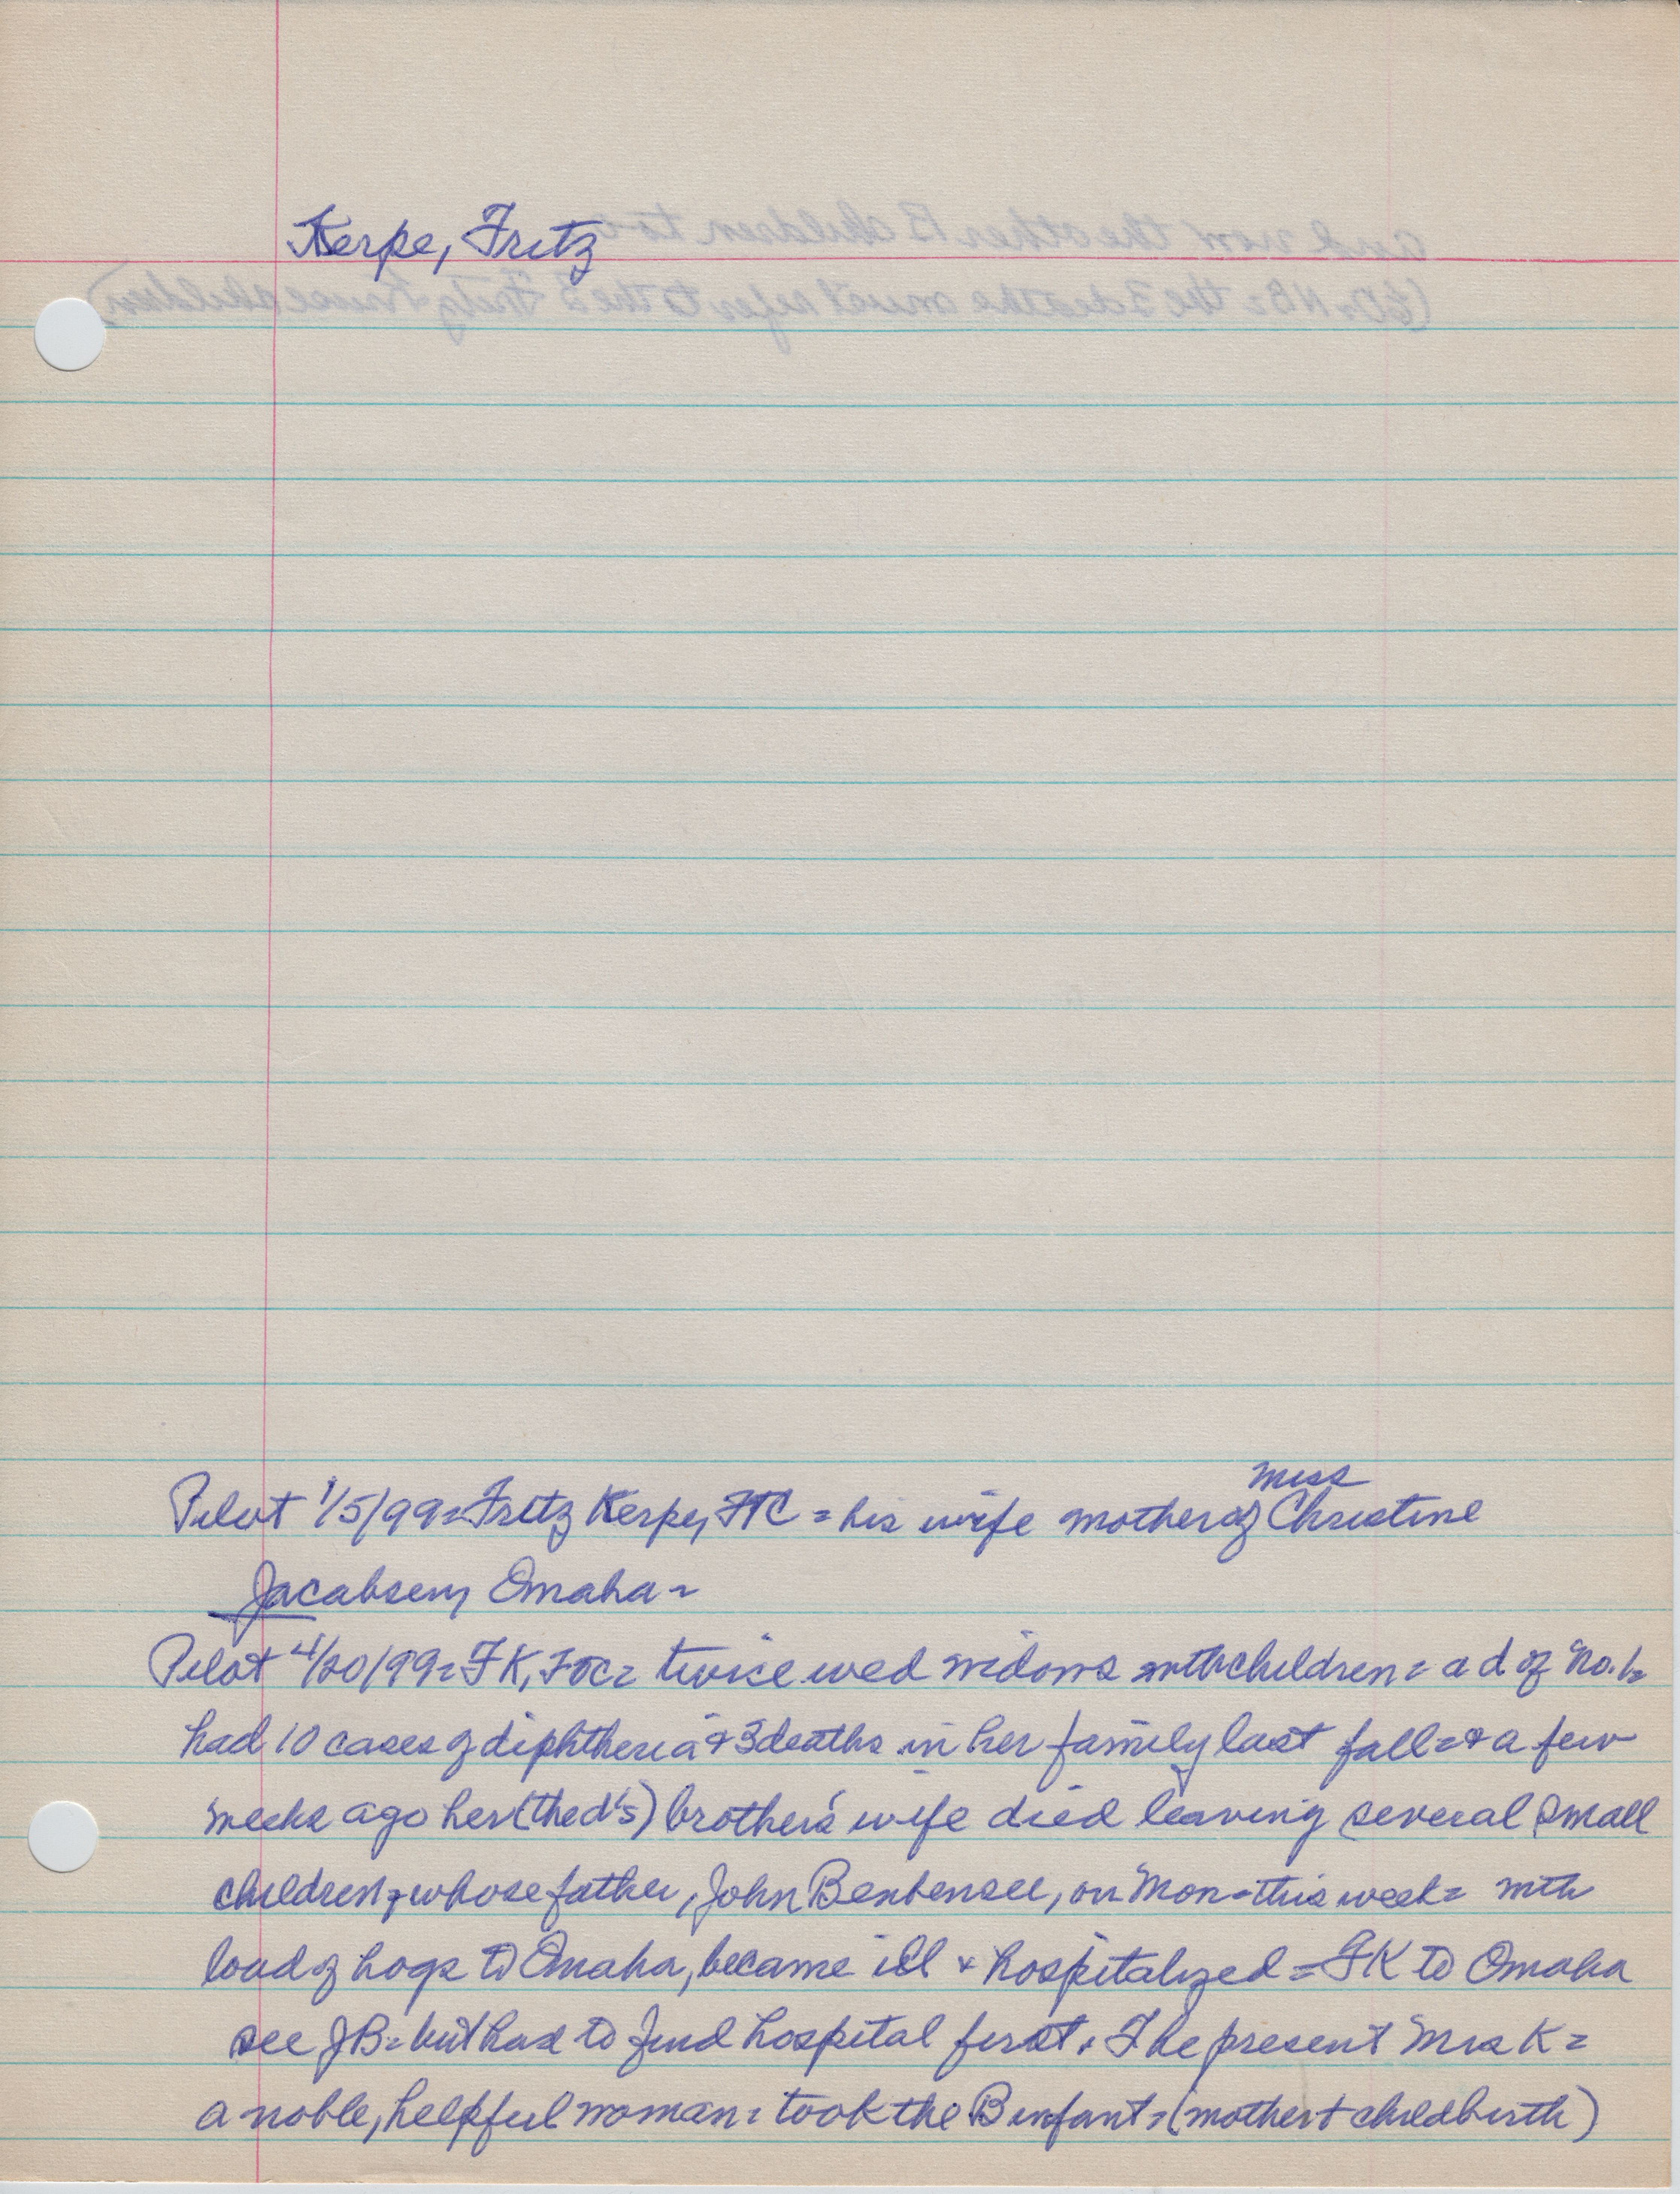 Kerpe, Fritz
and now the other B children too
the 3 deaths must refer to the 3 Fritz children)
Pilot 1/5/99 = Fritz Kerpe, FTC = his wife mother of Miss Christine
Jacobsen, Omaha =
Pilot 4/20/99 = FK, = twice wed widows with children = a d of No. 1 =
had 10 cases of diphtheria & 3 deaths in her family last fall = & a few
weeks ago her (the d's) brother's wife died leaving several small
children, whose father, John on Mon = this week = with
load of hogs to Omaha, became ill & hospitalized = FK to Omaha
see JB = but had to find hospital first. The present Mrs K =
a noble, helpful woman = took the B infant = (mother + childbirth)